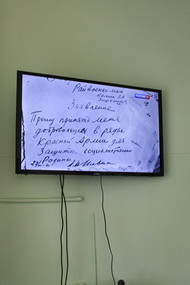 Райвоенкомат
Заявление
Прошу принять меня
добровольцем в ряды
Красной Армии для
защиты социалистич
Родины